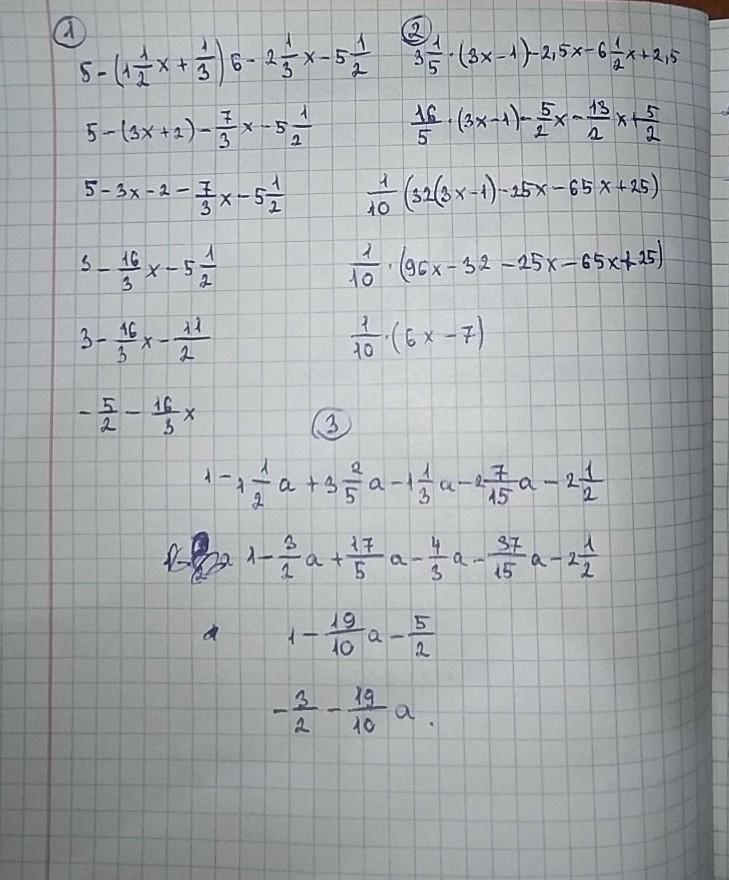 ①
5 - (1 1/2 x + 1/3) 6 - 2 1/3 x - 5 1/2
5 - (3x + 2) - 7/3 x - 5 1/2
5 - 3x - 2 - 7/3 x - 5 1/2
3 - 16/3 x - 5 1/2
3 - 16/3 x - 11/2
- 5/2 - 16/3 x
②
3 1/5 · (3x - 1) - 2,5x - 6 1/2 x + 2,5
16/5 · (3x - 1) - 5/2 x - 13/2 x + 5/2
1/10 (32(3x - 1) - 25x - 65x + 25)
1/10 · (96x - 32 - 25x - 65x + 25)
1/10 · (6x - 7)
③
1 - 1 1/2 a + 3 2/5 a - 1 1/3 a - 2 7/15 a - 2 1/2
1 - 3/2 a + 17/5 a - 4/3 a - 37/15 a - 2 1/2
1 - 19/10 a - 5/2
- 3/2 - 19/10 a .